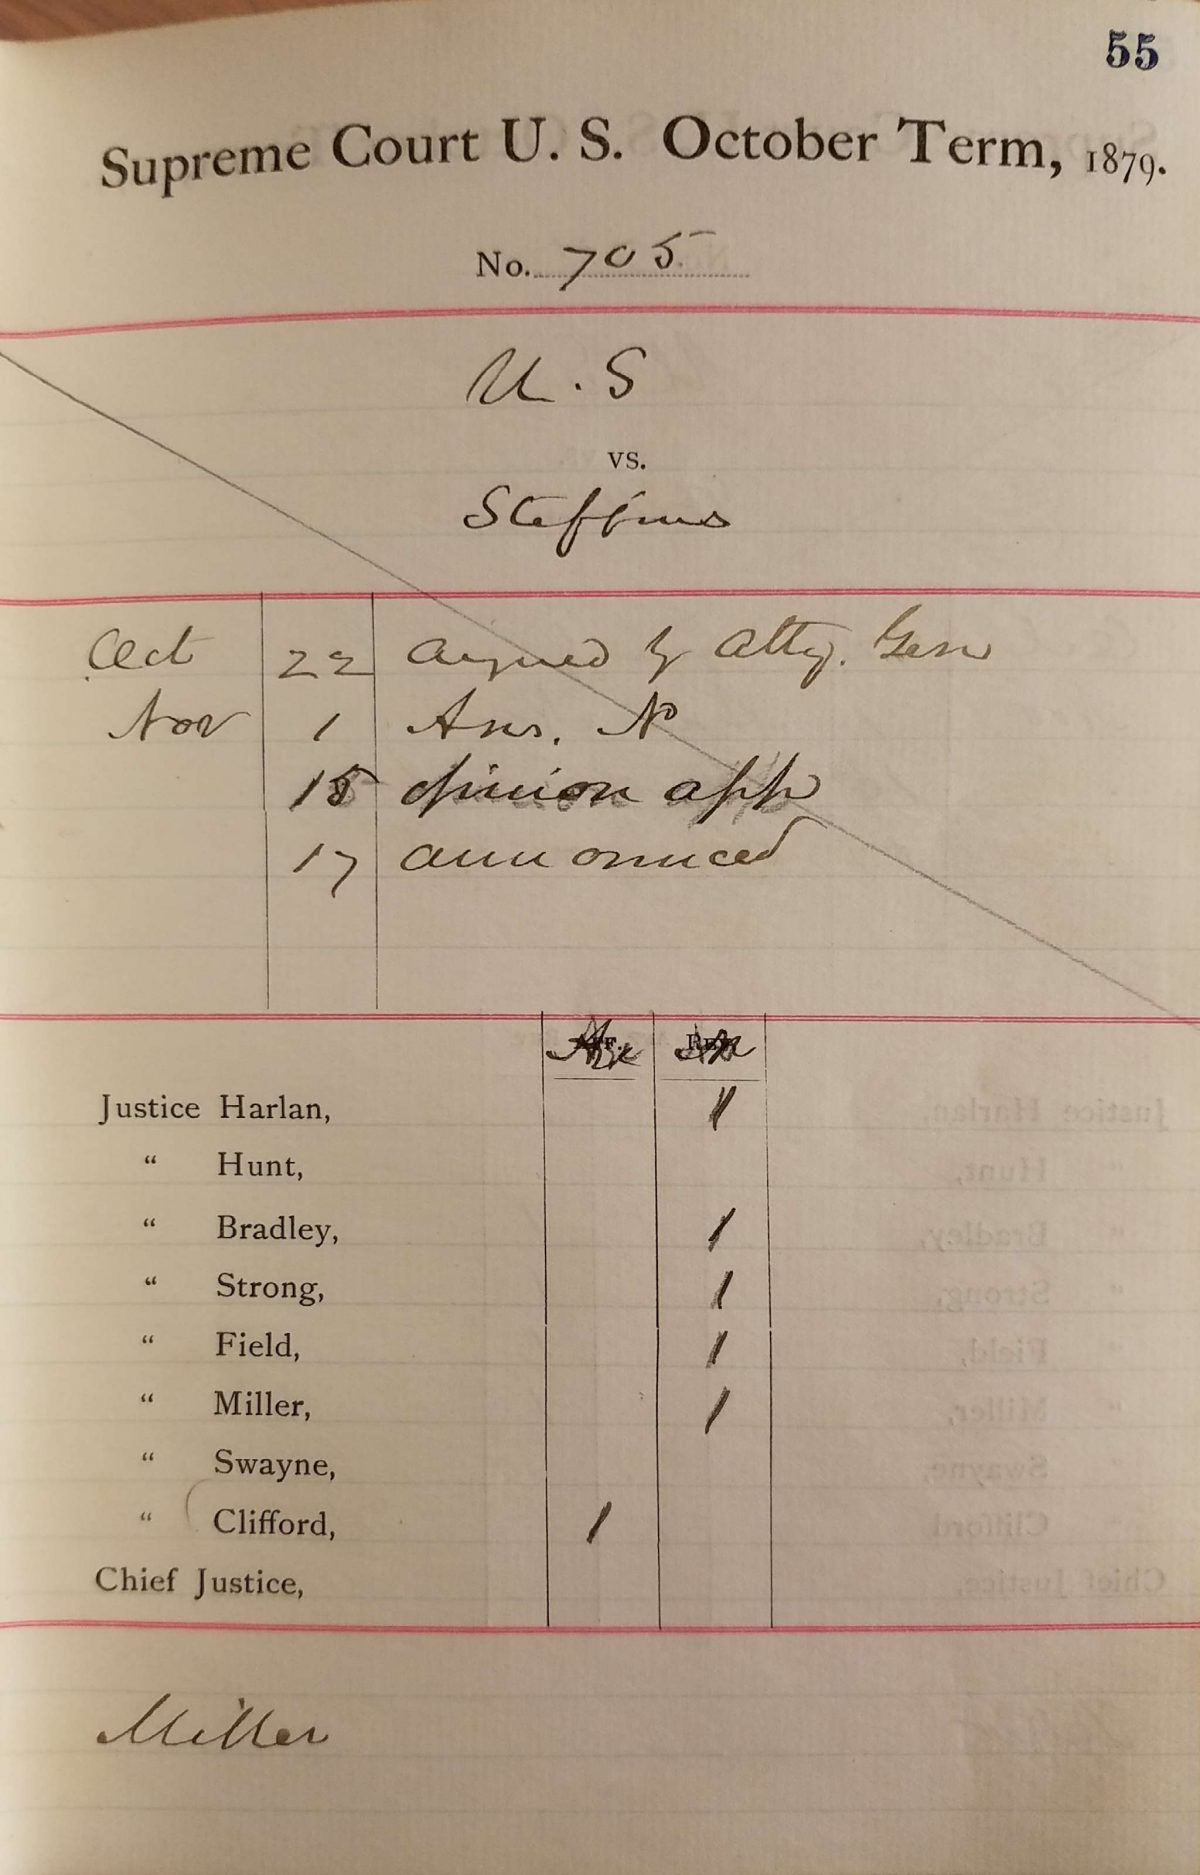 55
Supreme Court U. S. October Term, 1879.
No. 705
U. S
vs.
Steffens
Oct 22 argued by Atty. Gen
Nov 1 Ans. No
15 opinion app
17 announced
Justice Harlan, 1
" Hunt,
" Bradley, 1
" Strong, 1
" Field, 1
" Miller, 1
" Swayne,
" Clifford, 1
Chief Justice,
Miller